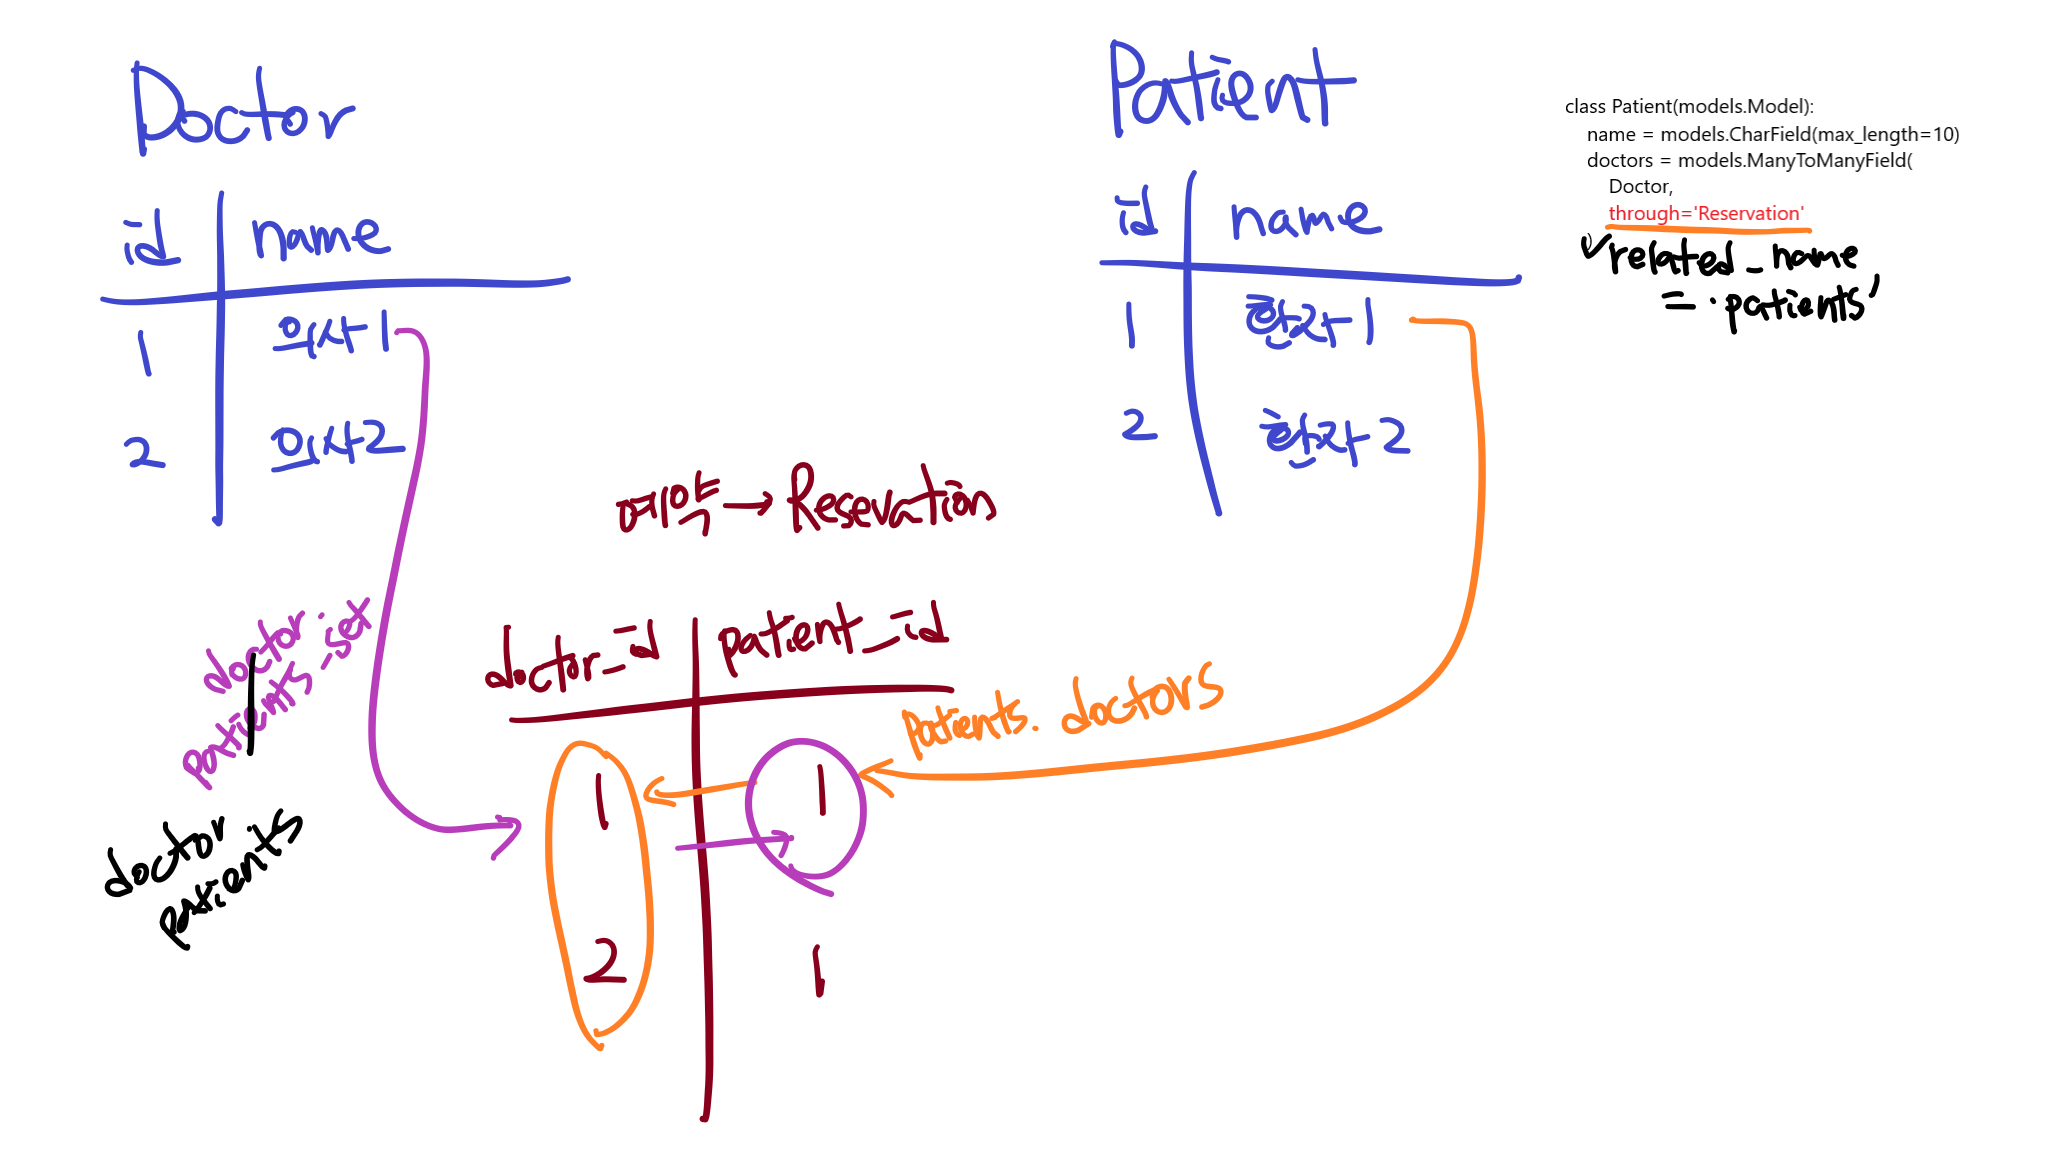 Doctor
id name
1 의사1
2 의사2
Patient
id name
1 환자1
2 환자2
class Patient(models.Model):
name = models.CharField(max_length=10)
doctors = models.ManyToManyField(
Doctor,
through='Reservation'
related_name
= 'patients'
예약 → Resevation
doctor_id patient_id
1 1
2 1
doctor.
patients_set
doctor
patients
patients. doctors